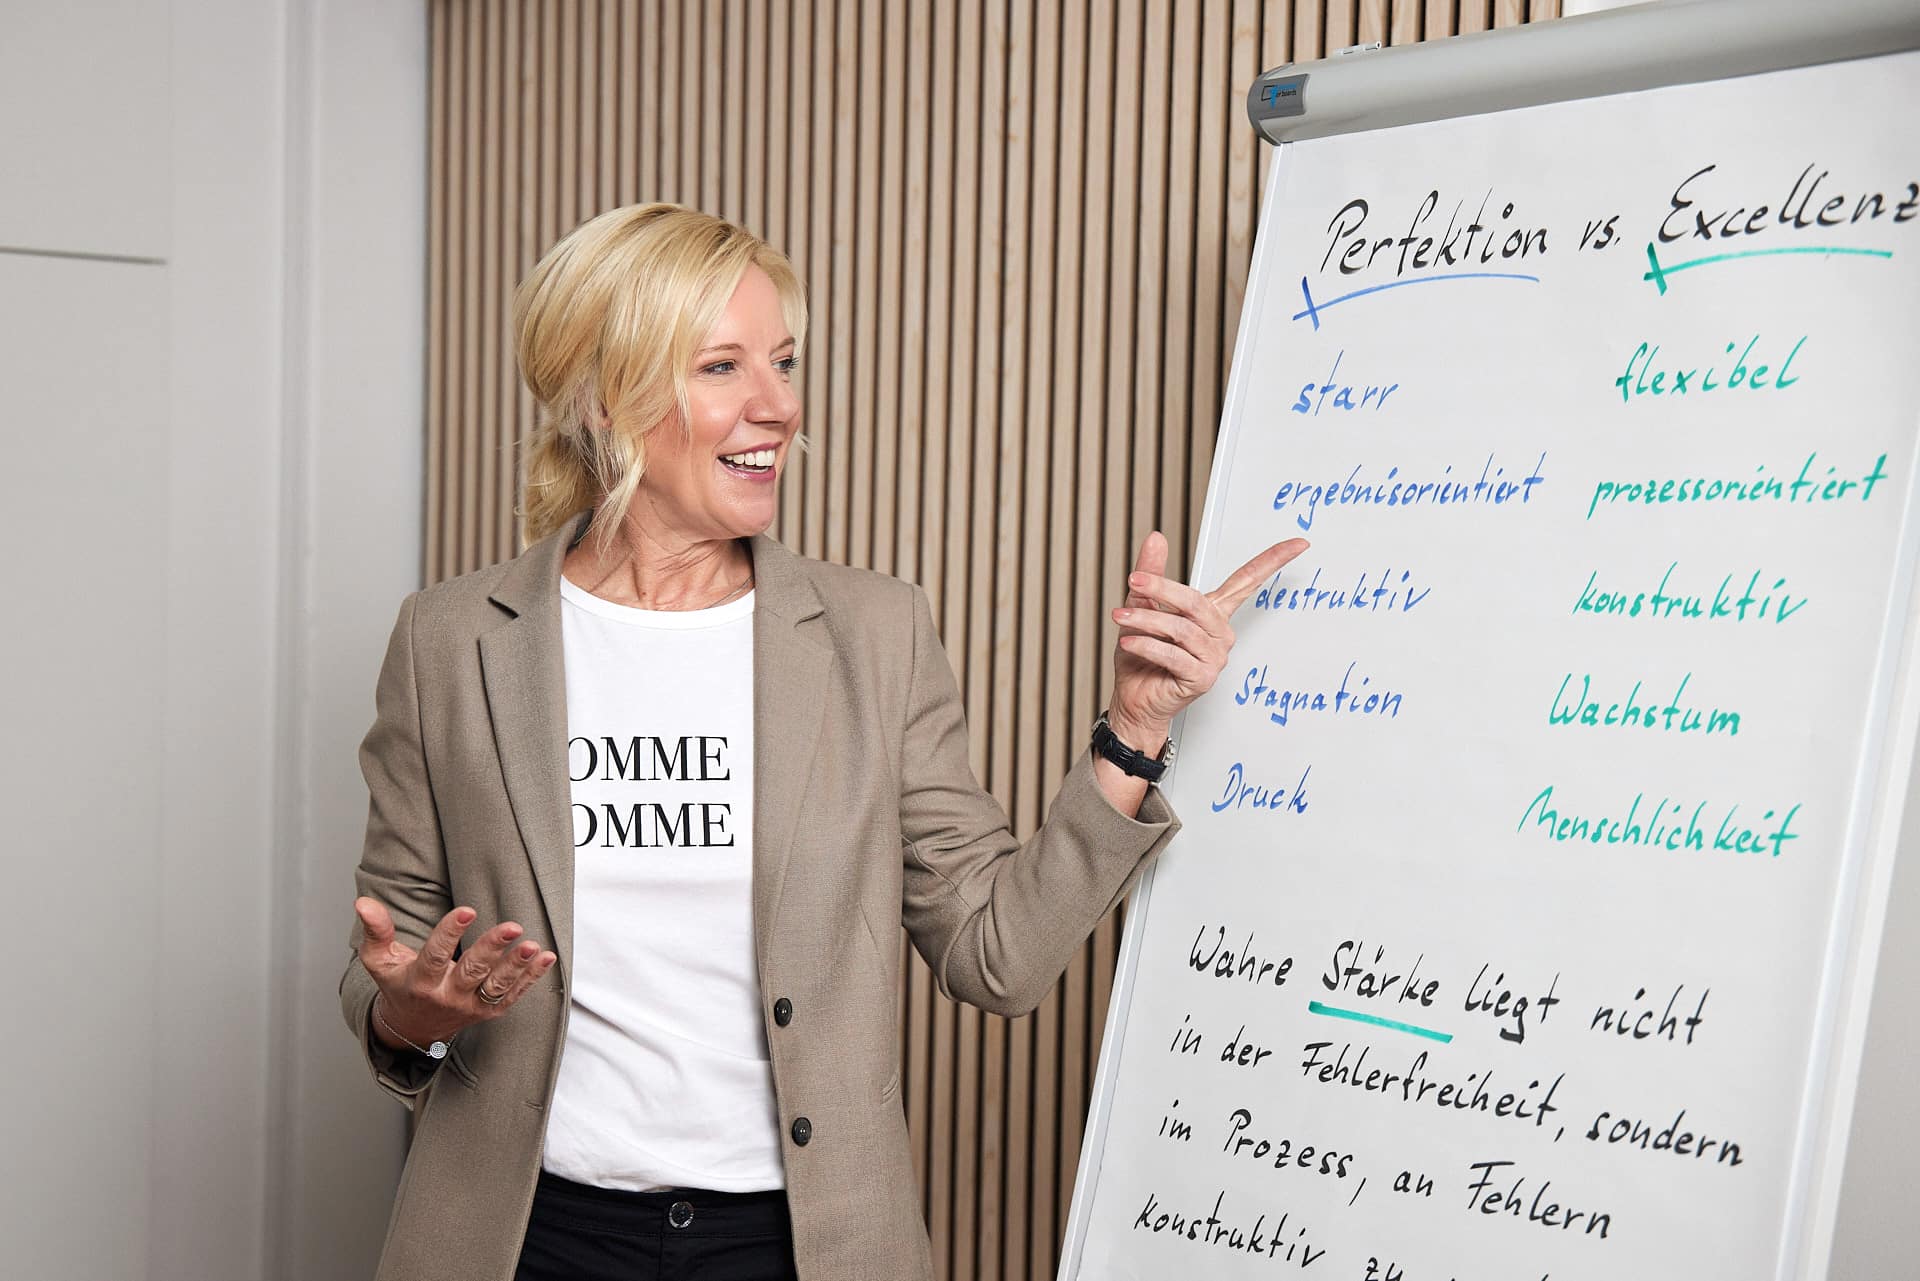 Perfektion vs. Excellenz
starr flexibel
ergebnisorientiert prozessorientiert
destruktiv konstruktiv
Stagnation Wachstum
Druck Menschlichkeit
Wahre Stärke liegt nicht
in der Fehlerfreiheit, sondern
im Prozess, an Fehlern
konstruktiv zu
OMME
OMME